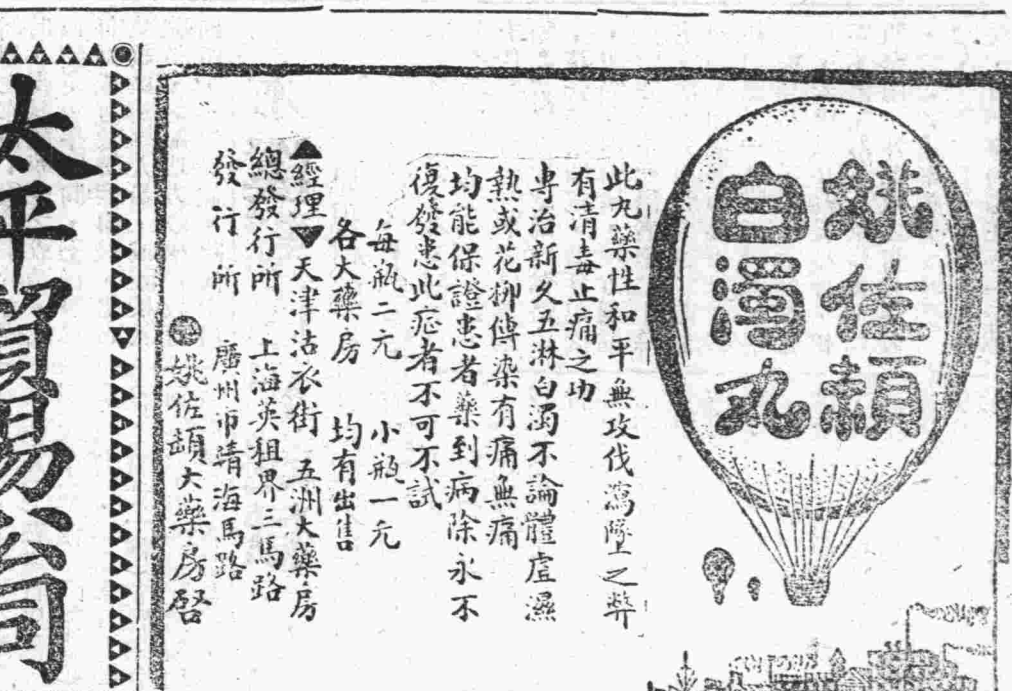 姚佐頓
白濁丸
此丸藥性和平無攻伐瀉墜之弊
有清毒止痛之功
專治新久五淋白濁不論體虛濕
熱或花柳傳染有痛無痛
均能保證患者藥到病除永不
復發患此症者不可不試
每瓶二元 小瓶一元
各大藥房 均有出售
▲經理▼天津沽衣街 五洲大藥房
總發行所 上海英租界三馬路
發行所 廣州市靖海馬路
姚佐頓大藥房啓
太平賜公司